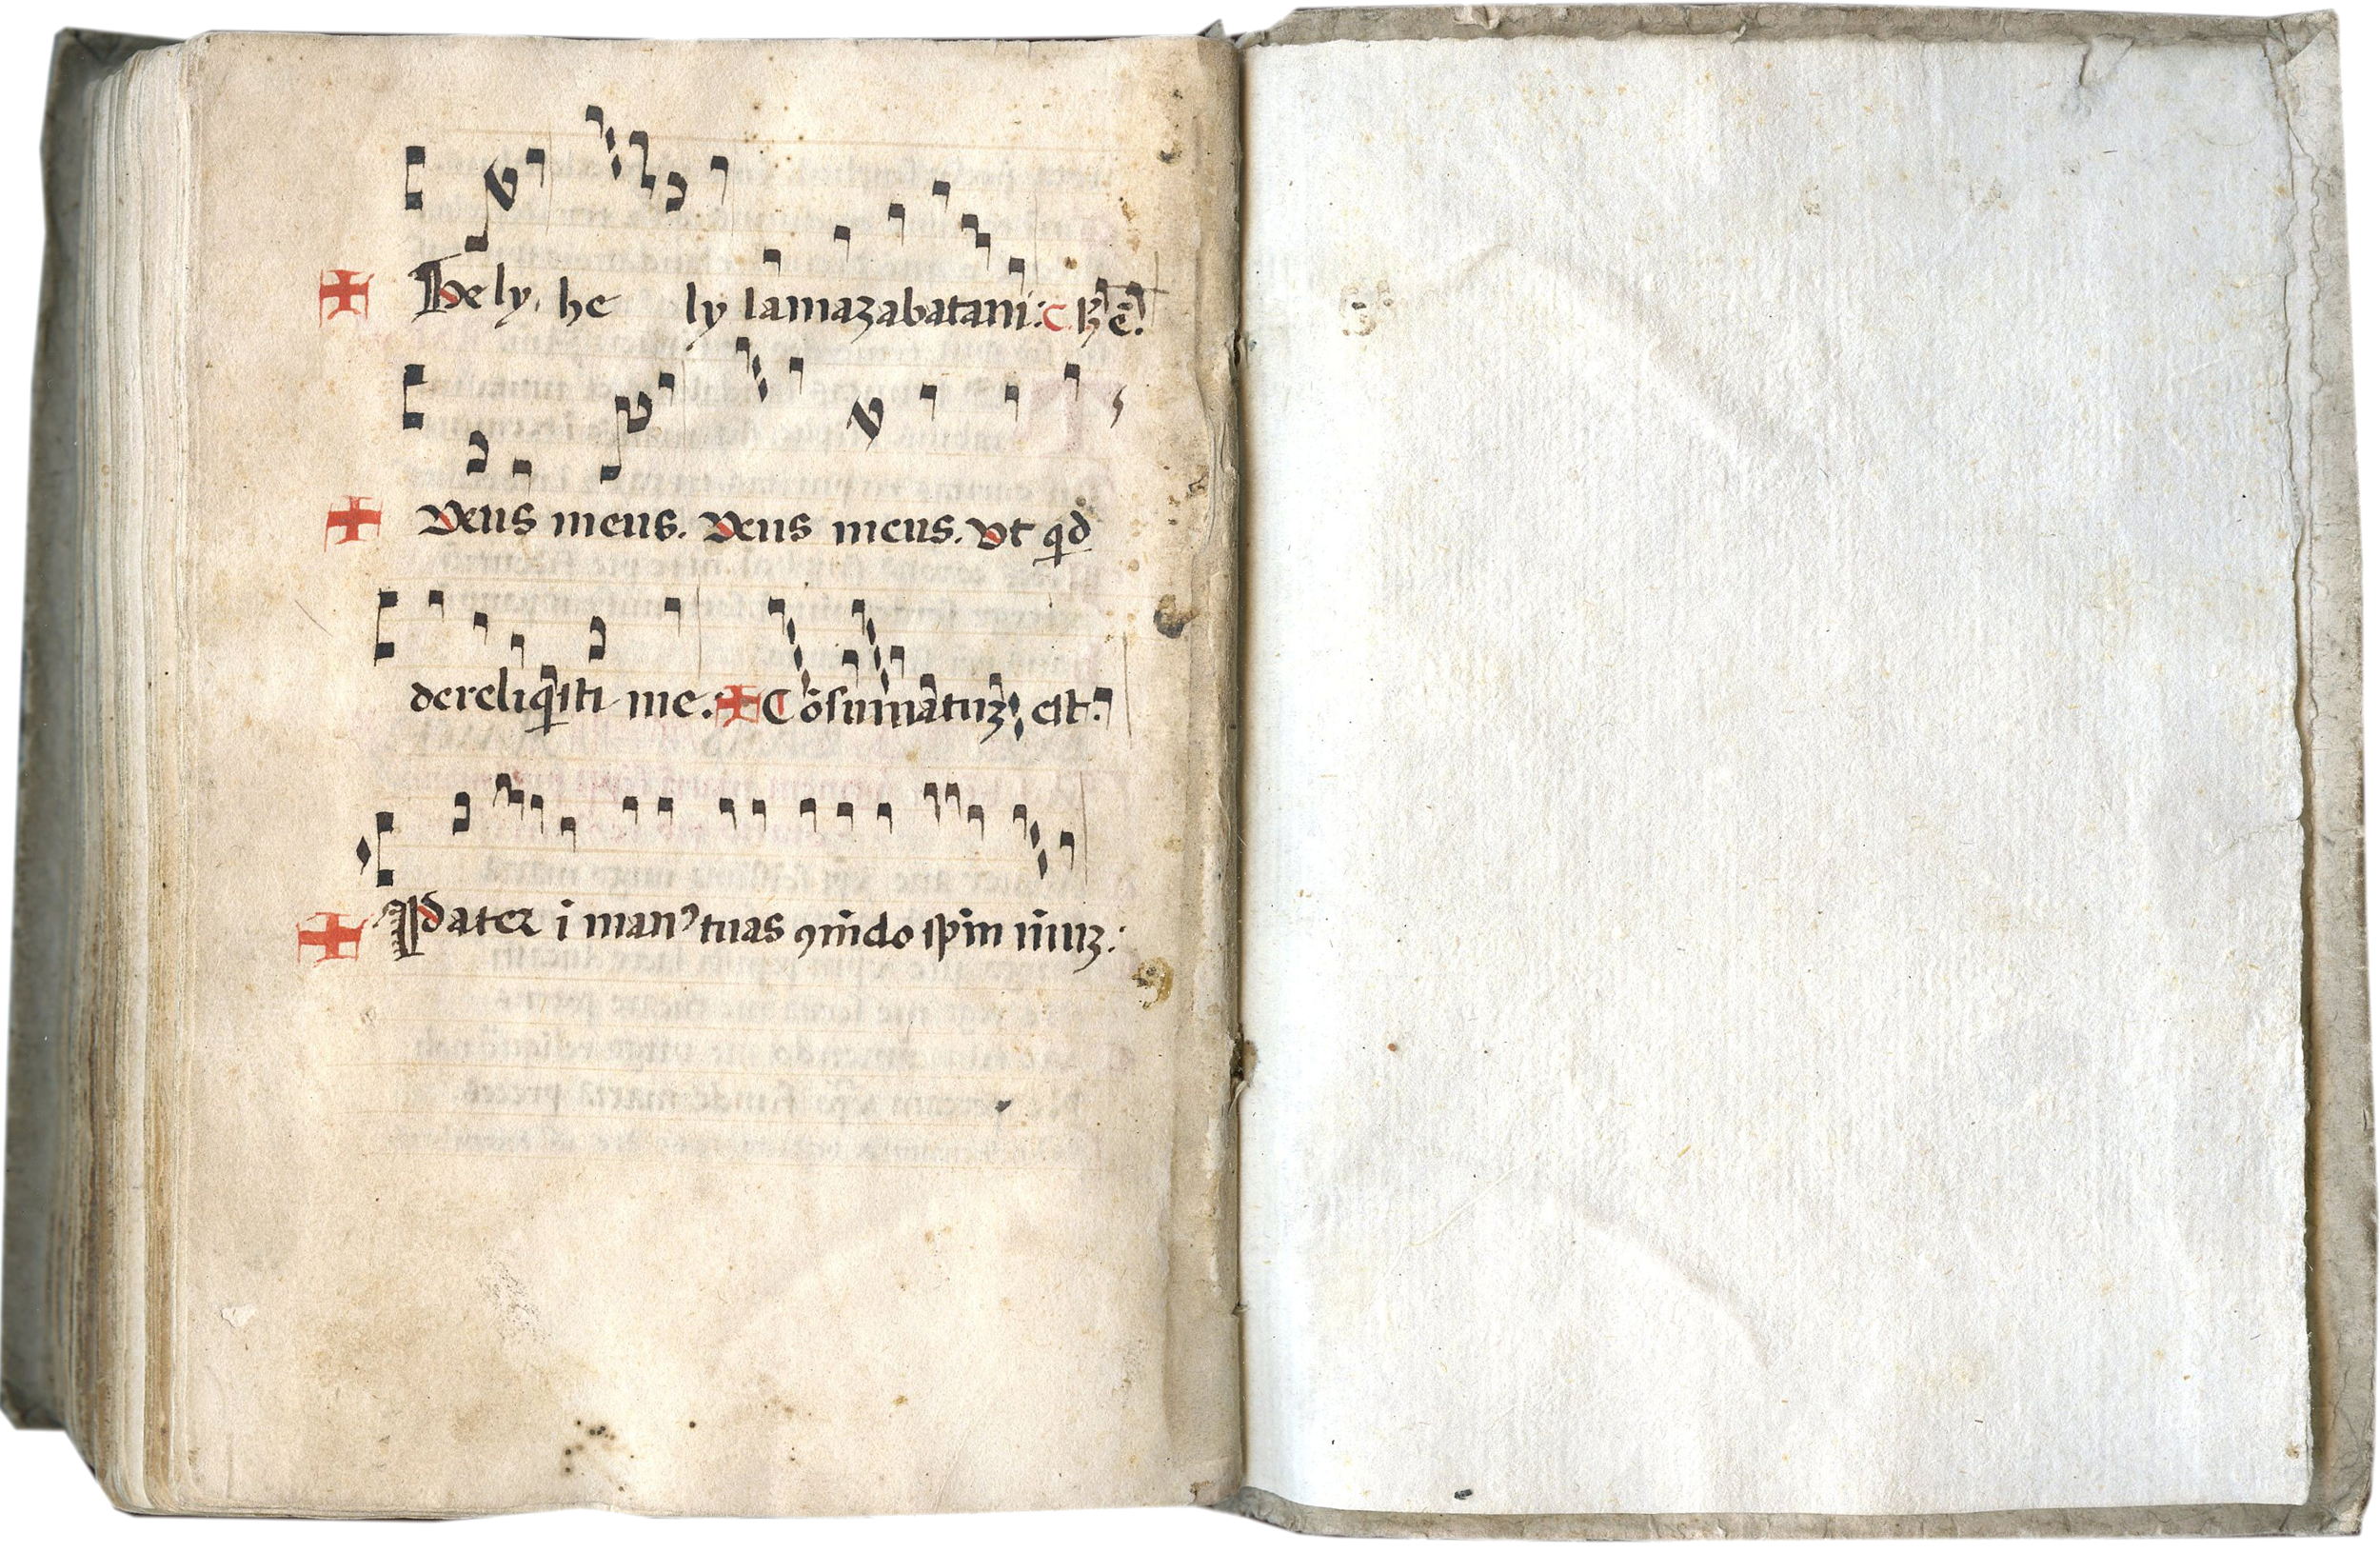 Hely, he ly lamazabatani: C. ꝶ ē.
Deus meus. Deus meus. Ut qid
dereliqisti me. Cōsumatuꝫ est.
Pater ī manꝰ tuas ꝯmēdo spm̄ meuꝫ: